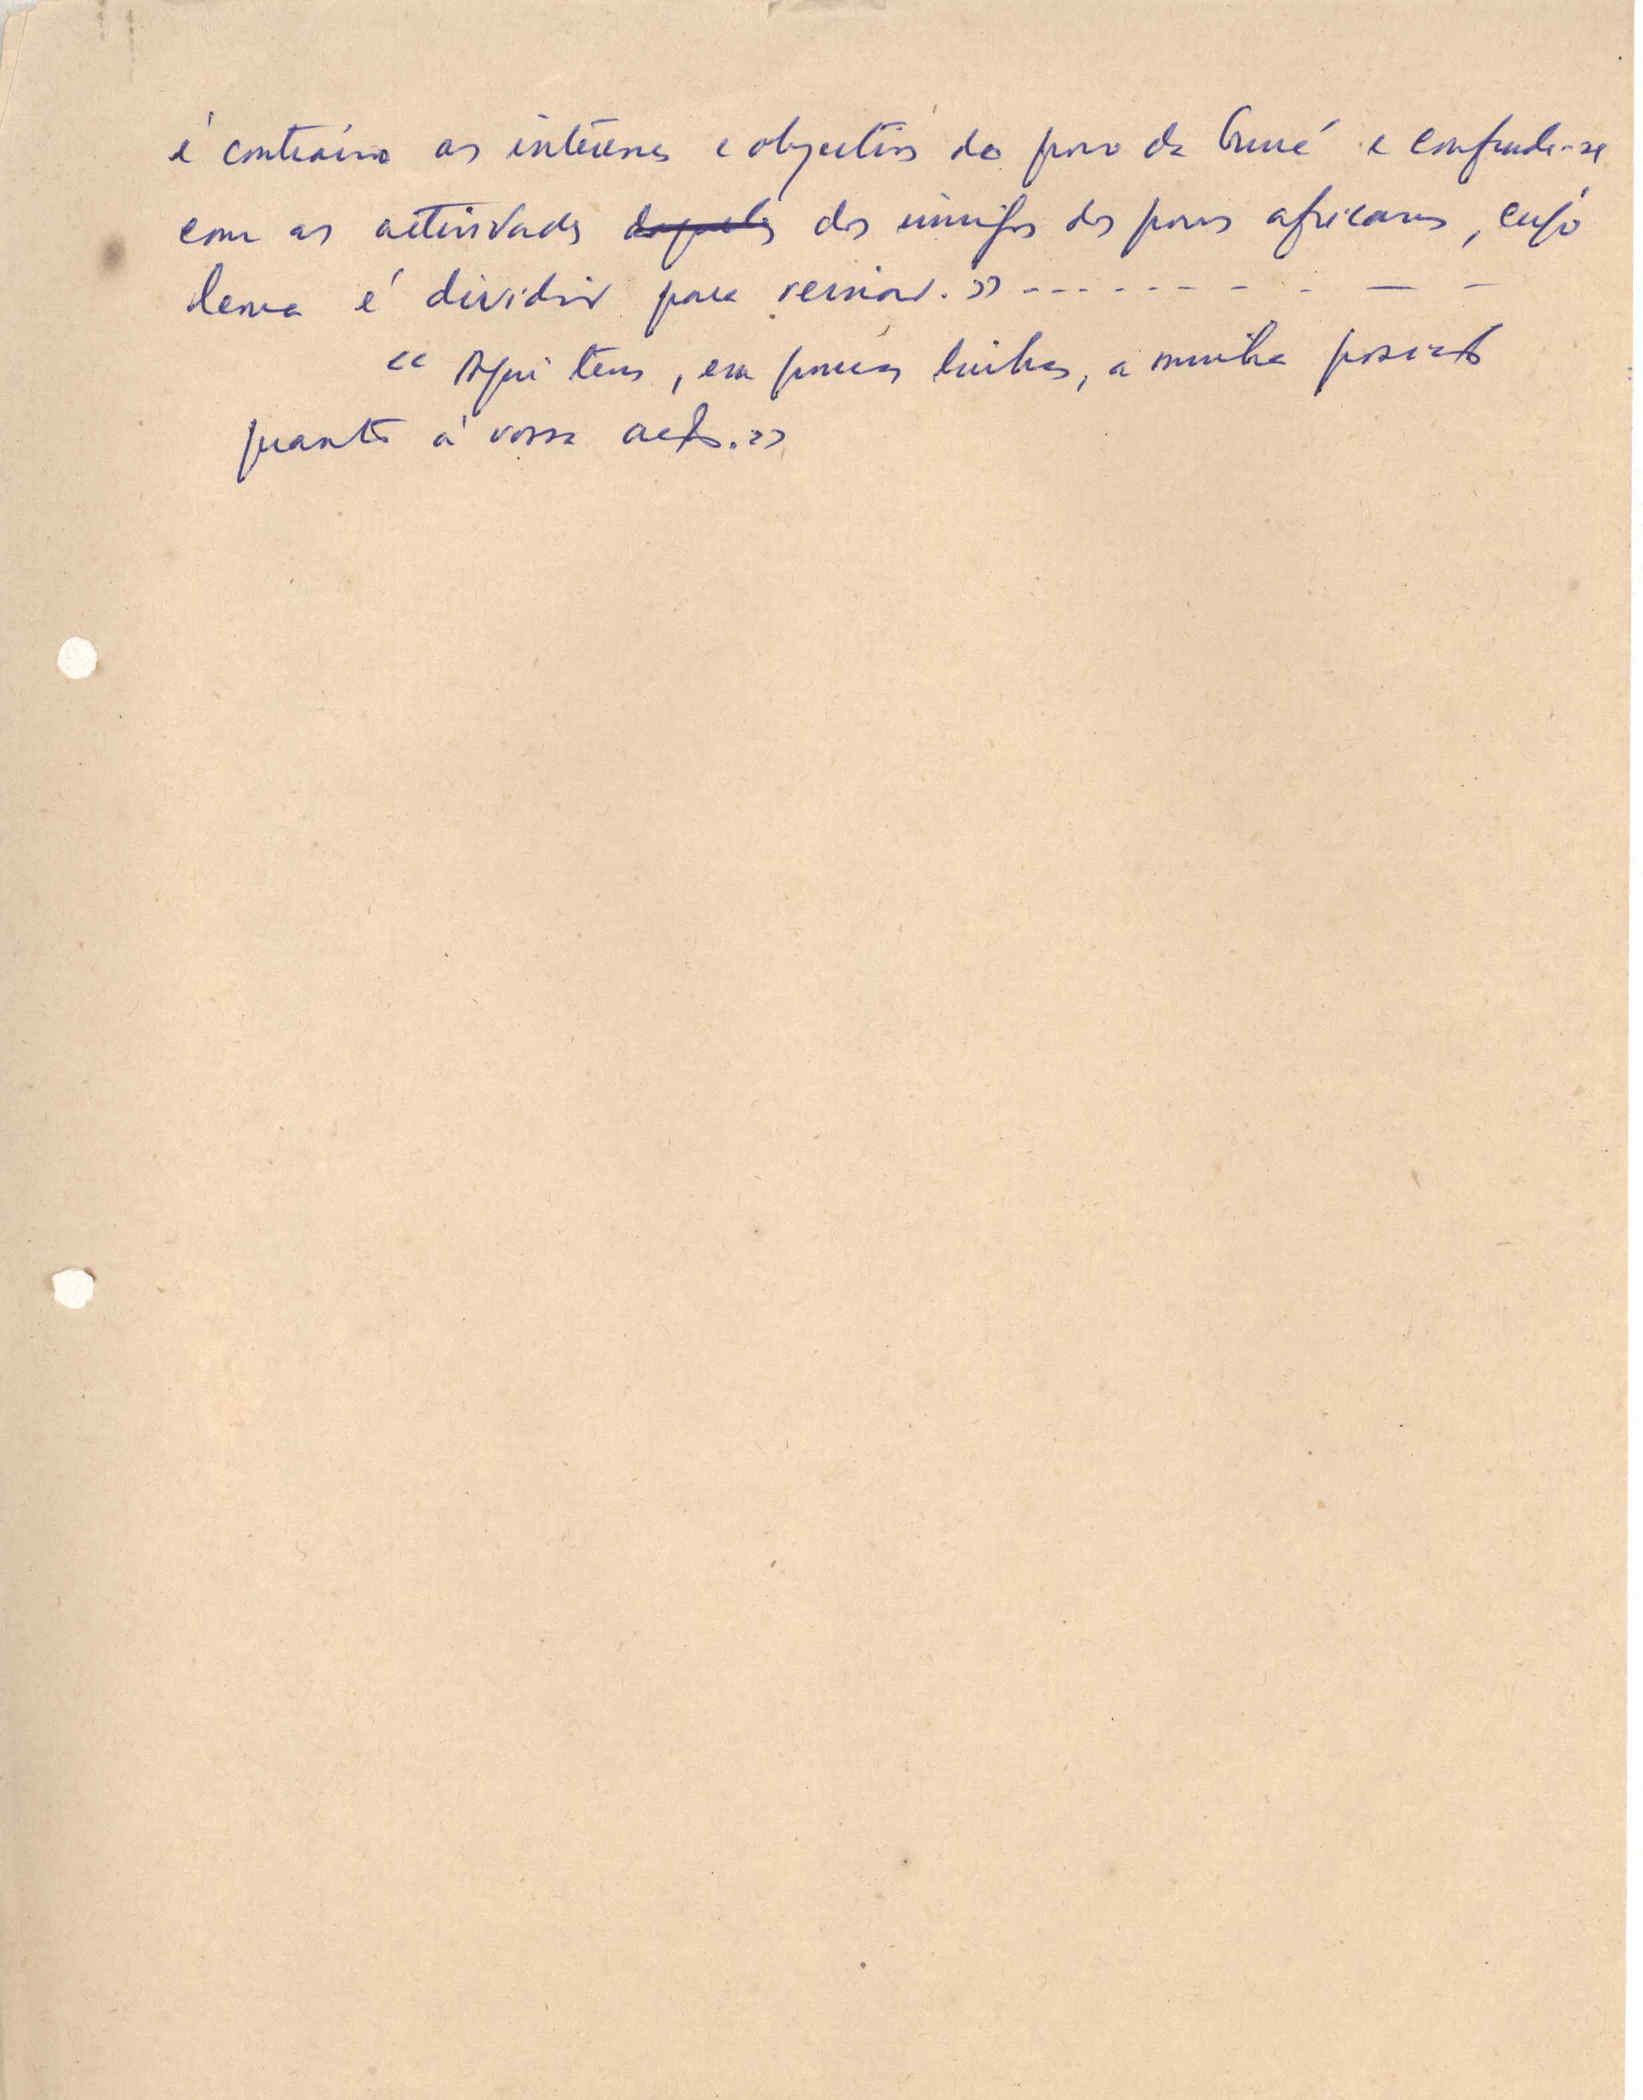 é contrário aos interesses e objectivos do povo da Guiné e confunde-se
com as actividades daqueles dos inimigos dos povos africanos, cujo
lema é dividir para reinar.» - - - - - - - - - - -
“ Aqui tens, em poucas linhas, a minha posição
quanto à vossa acção.”